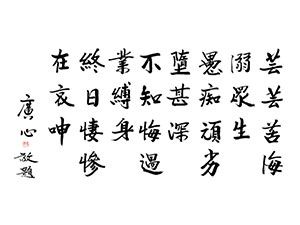 芸芸苦海
溺眾生
愚痴頑劣
墮甚深
不知悔過
業縛身
終日悽慘
在哀呻
廣心敬題